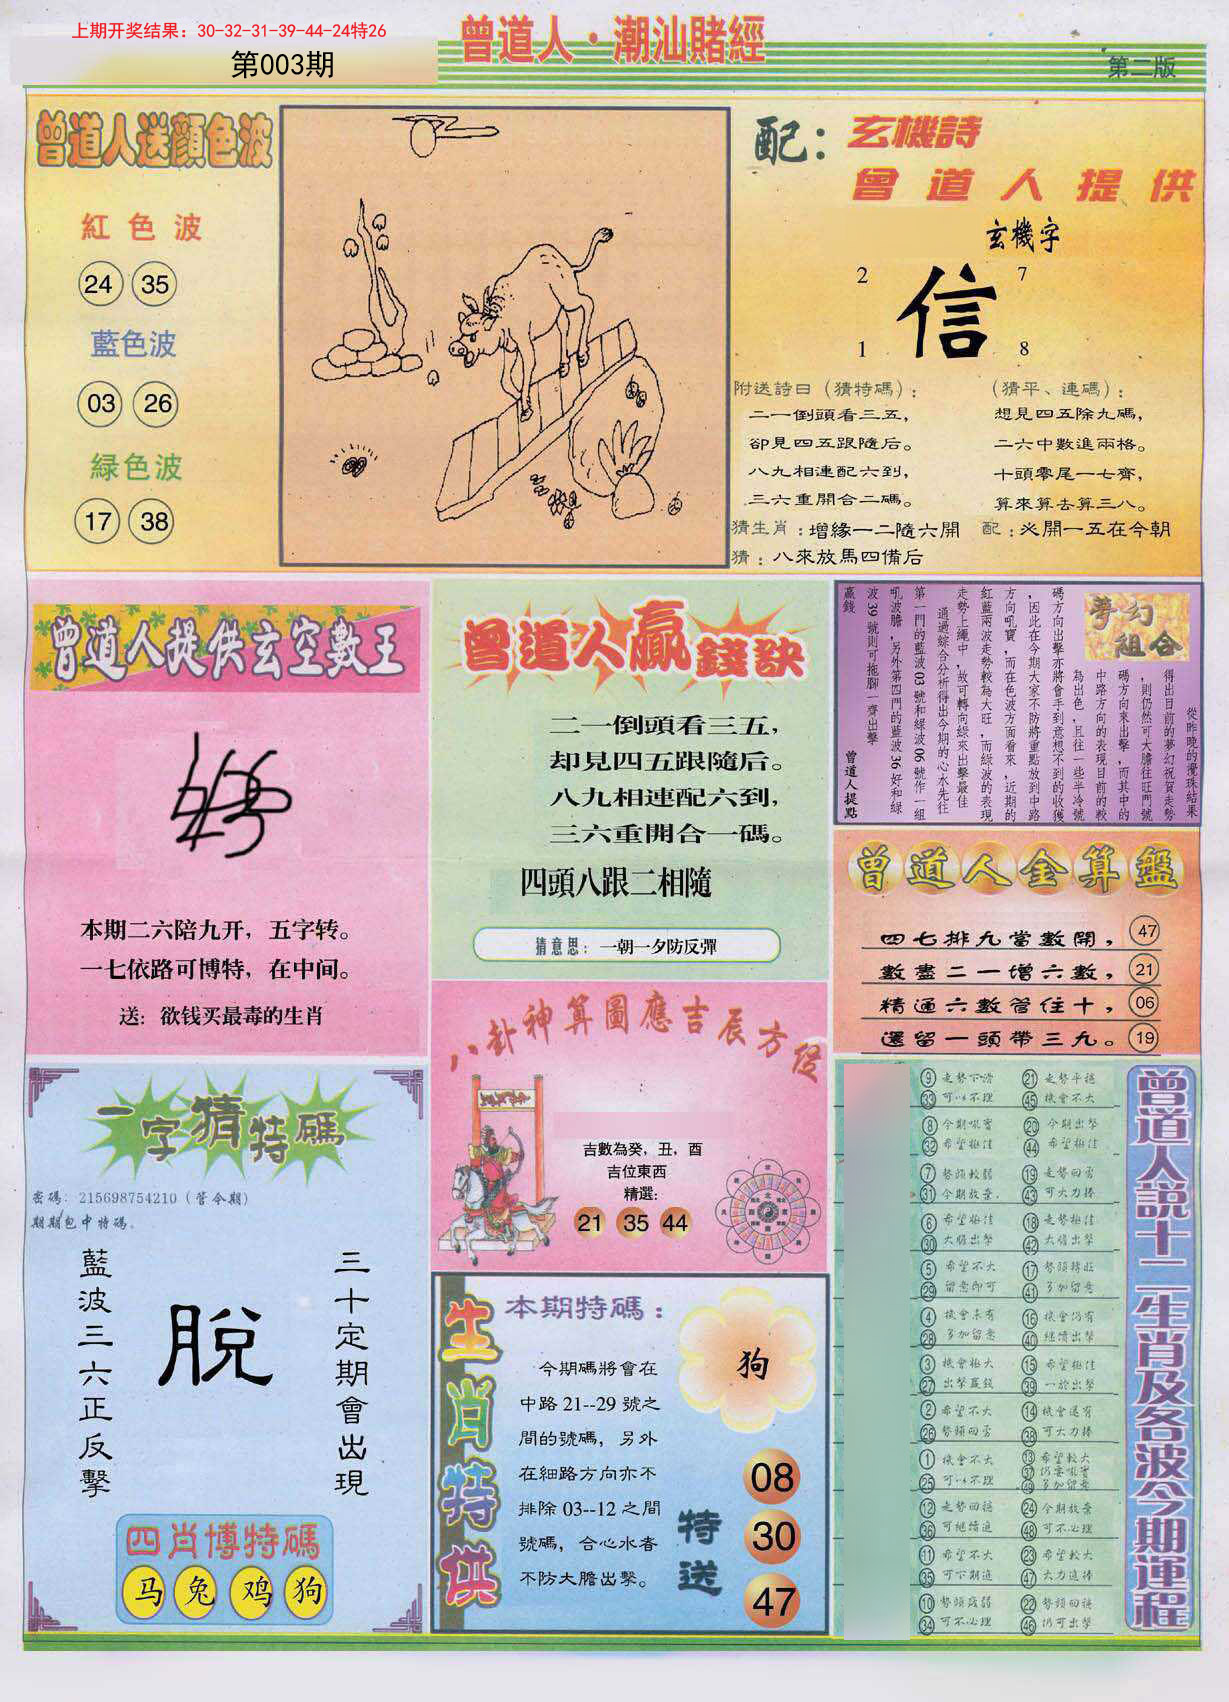 上期开奖结果：30-32-31-39-44-24特26
第003期
曾道人·潮汕賭經
第二版
曾道人送顔色波
紅色波
24 35
藍色波
03 26
緑色波
17 38
配：玄機詩
曾道人提供
玄機字
2 7
信
1 8
附送詩曰（猜特碼）：
二一倒頭看三五，
卻見四五跟隨后。
八九相連配六到，
三六重開合二碼。
（猜平、連碼）：
想見四五除九碼，
二六中數進兩格。
十頭零尾一七齊，
算來算去算三八。
猜生肖：增緣一二隨六開
配：必開一五在今朝
猜：八來放馬四備后
曾道人提供玄空數王
本期二六陪九开，五字转。
一七依路可博特，在中间。
送：欲钱买最毒的生肖
曾道人贏錢訣
二一倒頭看三五，
却見四五跟隨后。
八九相連配六到，
三六重開合一碼。
四頭八跟二相隨
猜意思：一朝一夕防反彈
夢幻組合
從昨晚的攪珠結果
得出目前的夢幻祝賀走勢
，則仍然可大膽往旺門號
碼方向來出擊，而其中的
中路方向的表現目前的較
為出色，且往一些半冷號
碼方向出擊亦將會手到意想不到的收獲
，因此在今期大家不防將重點放到中路
方向吼寶，而在色波方面看來，近期的
紅藍兩波走勢較為大旺，而綠波的表現
走勢上繩中，故可轉向綠來出擊最佳
通過綜合分析得出今期的心水先往
第一門的藍波03號和綠波06號作一組
吼波膽，另外第四門的藍波36好和綠
波39號則可拖腳一齊出擊
贏錢
曾道人提點
曾道人金算盤
四七排九當數開， 47
數盡二一增六數， 21
精通六數管住十， 06
還留一頭帶三九。 19
八卦神算圖應吉辰方位
吉數為癸，丑，酉
吉位東西
精選：
21 35 44
一字猜特碼
密碼：215698754210（管令期）
期期包中特碼。
藍波三六正反擊
脫
三十定期會出現
四肖博特碼
马 兔 鸡 狗
生肖特供
本期特碼：
今期碼將會在
中路21--29號之
間的號碼，另外
在細路方向亦不
排除03--12之間
號碼，合心水者
不防大膽出擊。
狗
特送
08
30
47
曾道人說十二生肖及各波今期運程
⑨ 走勢下滑 ㉑ 走勢平穩
㉝ 可以不理 ㊺ 機會不大
⑧ 今期吼實 ⑳ 今期出擊
㉜ 希望極佳 ㊹ 希望極佳
⑦ 勢頭較弱 ⑲ 走勢回勇
㉛ 今期放棄. ㊸ 可大力捧
⑥ 希望極佳 ⑱ 走勢極佳
㉚ 大膽出擊 ㊷ 大膽出擊
⑤ 希望不大 ⑰ 勢頭轉旺
㉙ 留意即可 ㊶ 多加留意
④ 機會未有 ⑯ 機會仍有
㉘ 多加留意 ㊵ 繼續出擊
③ 機會極大 ⑮ 希望極佳
㉗ 出擊贏錢 ㊴ 一於出擊
② 希望不大 ⑭ 機會還有
㉖ 勢頭回勇 ㊳ 可大力捧
① 機會不大 ⑬ 希望較大
㉕ 可以不理 ㊲ 仍要吼實
㊾ 多加留意
⑫ 走勢回穩 ㉔ 今期放棄
㊱ 可繼續追 ㊽ 可不必理
⑪ 希望不大 ㉓ 希望較大
㉟ 可下期追 ㊼ 大力追捧
⑩ 勢頭疲弱 ㉒ 勢頭回穩
㉞ 可不必理 ㊻ 仍可出擊